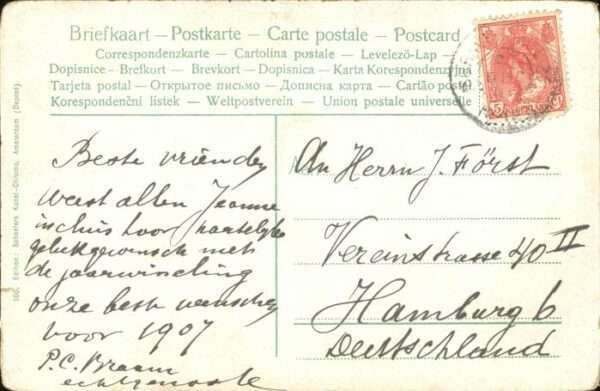 Briefkaart – Postkarte – Carte postale – Postcard
Correspondenzkarte – Cartolina postale – Levelező-Lap –
Dopisnice – Brefkort – Brevkort – Dopisnica – Karta Korespondencyjna
Tarjeta postal – Открытое письмо – Дописна карта – Cartão postal
Korespondenční lístek – Weltpostverein – Union postale universelle
Beste vrienden
weest allen Jeanne
incluis door hartelijke
gelukgewenscht met
de jaarwisseling
onze beste wenschen
voor 1907
P. C. Braam
echtgenoote
An Herrn J. Först
Vereinstrasse 40 II
Hamburg 6
Deutschland
5
Editeur: Schaefers Kunst-Chromo, Amsterdam